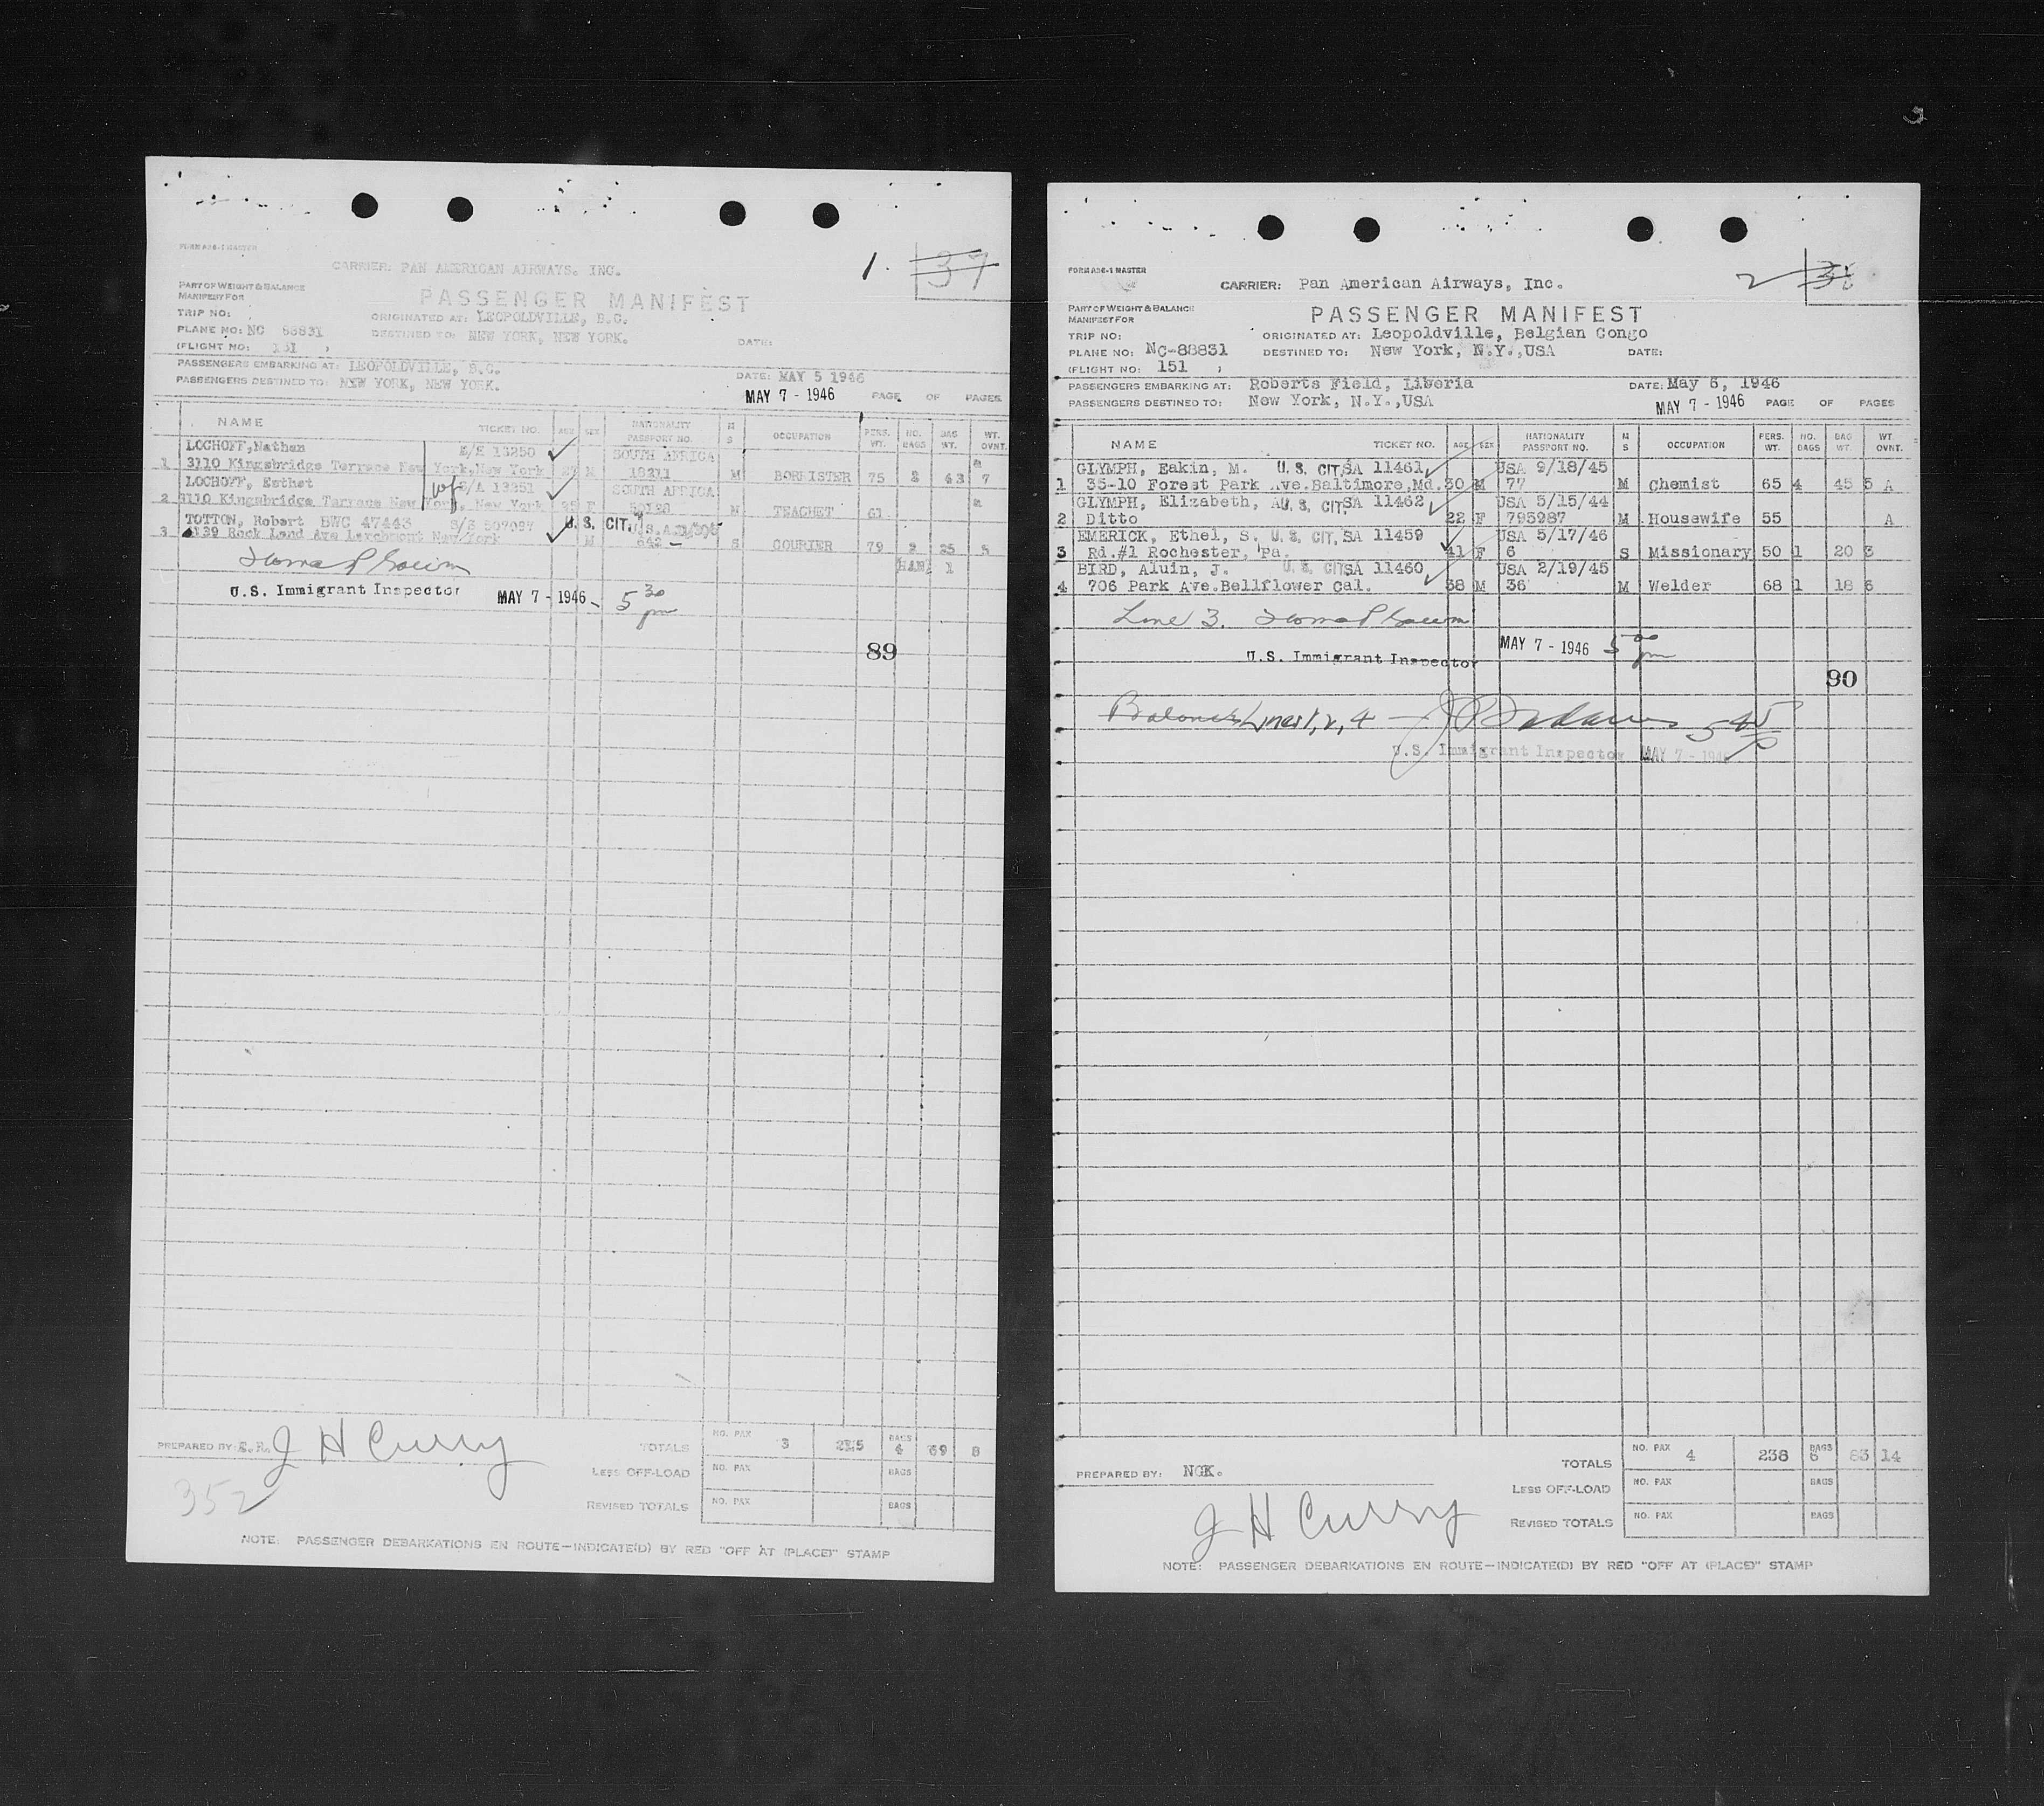 FORM ADE-1 MASTER
CARRIER: PAN AMERICAN AIRWAYS, INC.
1. 37
PART OF WEIGHT & BALANCE
MANIFEST FOR
PASSENGER MANIFEST
TRIP NO:
ORIGINATED AT: LEOPOLDVILLE, B.C.
PLANE NO: NC 88831
DESTINED TO: NEW YORK, NEW YORK.
DATE:
(FLIGHT NO: 151 )
PASSENGERS EMBARKING AT: LEOPOLDVILLE, B.C.
DATE: MAY 5 1946
PASSENGERS DESTINED TO: NEW YORK, NEW YORK.
MAY 7 - 1946 PAGE OF PAGES
NAME TICKET NO. AGE SEX NATIONALITY PASSPORT NO. M S OCCUPATION PERS. WT. NO. BAGS BAG WT. WT. OVNT.
LOCHOFF, Nathan 13250 SOUTH AFRICA
1 3110 Kingsbridge Terrace New York, New York M 18211 M BORRISTER 75 2 43 7
LOCHOFF, Esthet wf S/A 13251 SOUTH AFRICA
2 3110 Kingsbridge Terrace New York, New York 25 F TEACHET 61
TOTTON, Robert BWC 47443 S/S 507097 U. S. CIT. U.S.A.
3 Rock Land Ave Larchmont New York M 642 S COURIER 79 2 25 5
HAN 1
U.S. Immigrant Inspector MAY 7 - 1946 5 30 pm
89
PREPARED BY: E.R. J H Curry
TOTALS NO. PAX 3 215 BAGS 4 69 8
LESS OFF-LOAD NO. PAX BAGS
352
REVISED TOTALS NO. PAX BAGS
NOTE: PASSENGER DEBARKATIONS EN ROUTE—INDICATE(D) BY RED "OFF AT (PLACE)" STAMP
FORM ADE-1 MASTER
CARRIER: Pan American Airways, Inc.
2
PART OF WEIGHT & BALANCE
MANIFEST FOR
PASSENGER MANIFEST
TRIP NO:
ORIGINATED AT: Leopoldville, Belgian Congo
PLANE NO: NC-88831
DESTINED TO: New York, N.Y.,USA
DATE:
(FLIGHT NO: 151 )
PASSENGERS EMBARKING AT: Roberts Field, Liberia
DATE: May 6, 1946
PASSENGERS DESTINED TO: New York, N.Y.,USA
MAY 7 - 1946 PAGE OF PAGES
NAME TICKET NO. AGE SEX NATIONALITY PASSPORT NO. M S OCCUPATION PERS. WT. NO. BAGS BAG WT. WT. OVNT.
GLYMPH, Eakin, M. U. S. CIT. SA 11461 USA 9/18/45
1 35-10 Forest Park Ave.Baltimore,Md. 30 M 77 M Chemist 65 4 45 5 A
GLYMPH, Elizabeth, A U. S. CIT. SA 11462 USA 5/15/44
2 Ditto 22 F 795987 M Housewife 55 A
EMERICK, Ethel, S. U. S. CIT. SA 11459 USA 5/17/46
3 Rd.#1 Rochester, Pa. 41 F 6 S Missionary 50 1 20 3
BIRD, Aluin, J. U. S. CIT SA 11460 USA 2/19/45
4 706 Park Ave.Bellflower Cal. 38 M 36 M Welder 68 1 18 6
Line 3.
U.S. Immigrant Inspector MAY 7 - 1946 5 00 pm
90
Balance Lines 1, 2, 4 — 5 45 p
U.S. Immigrant Inspector MAY 7 - 1946
PREPARED BY: NGK.
J H Curry
TOTALS NO. PAX 4 238 BAGS 6 83 14
LESS OFF-LOAD NO. PAX BAGS
REVISED TOTALS NO. PAX BAGS
NOTE: PASSENGER DEBARKATIONS EN ROUTE—INDICATE(D) BY RED "OFF AT (PLACE)" STAMP